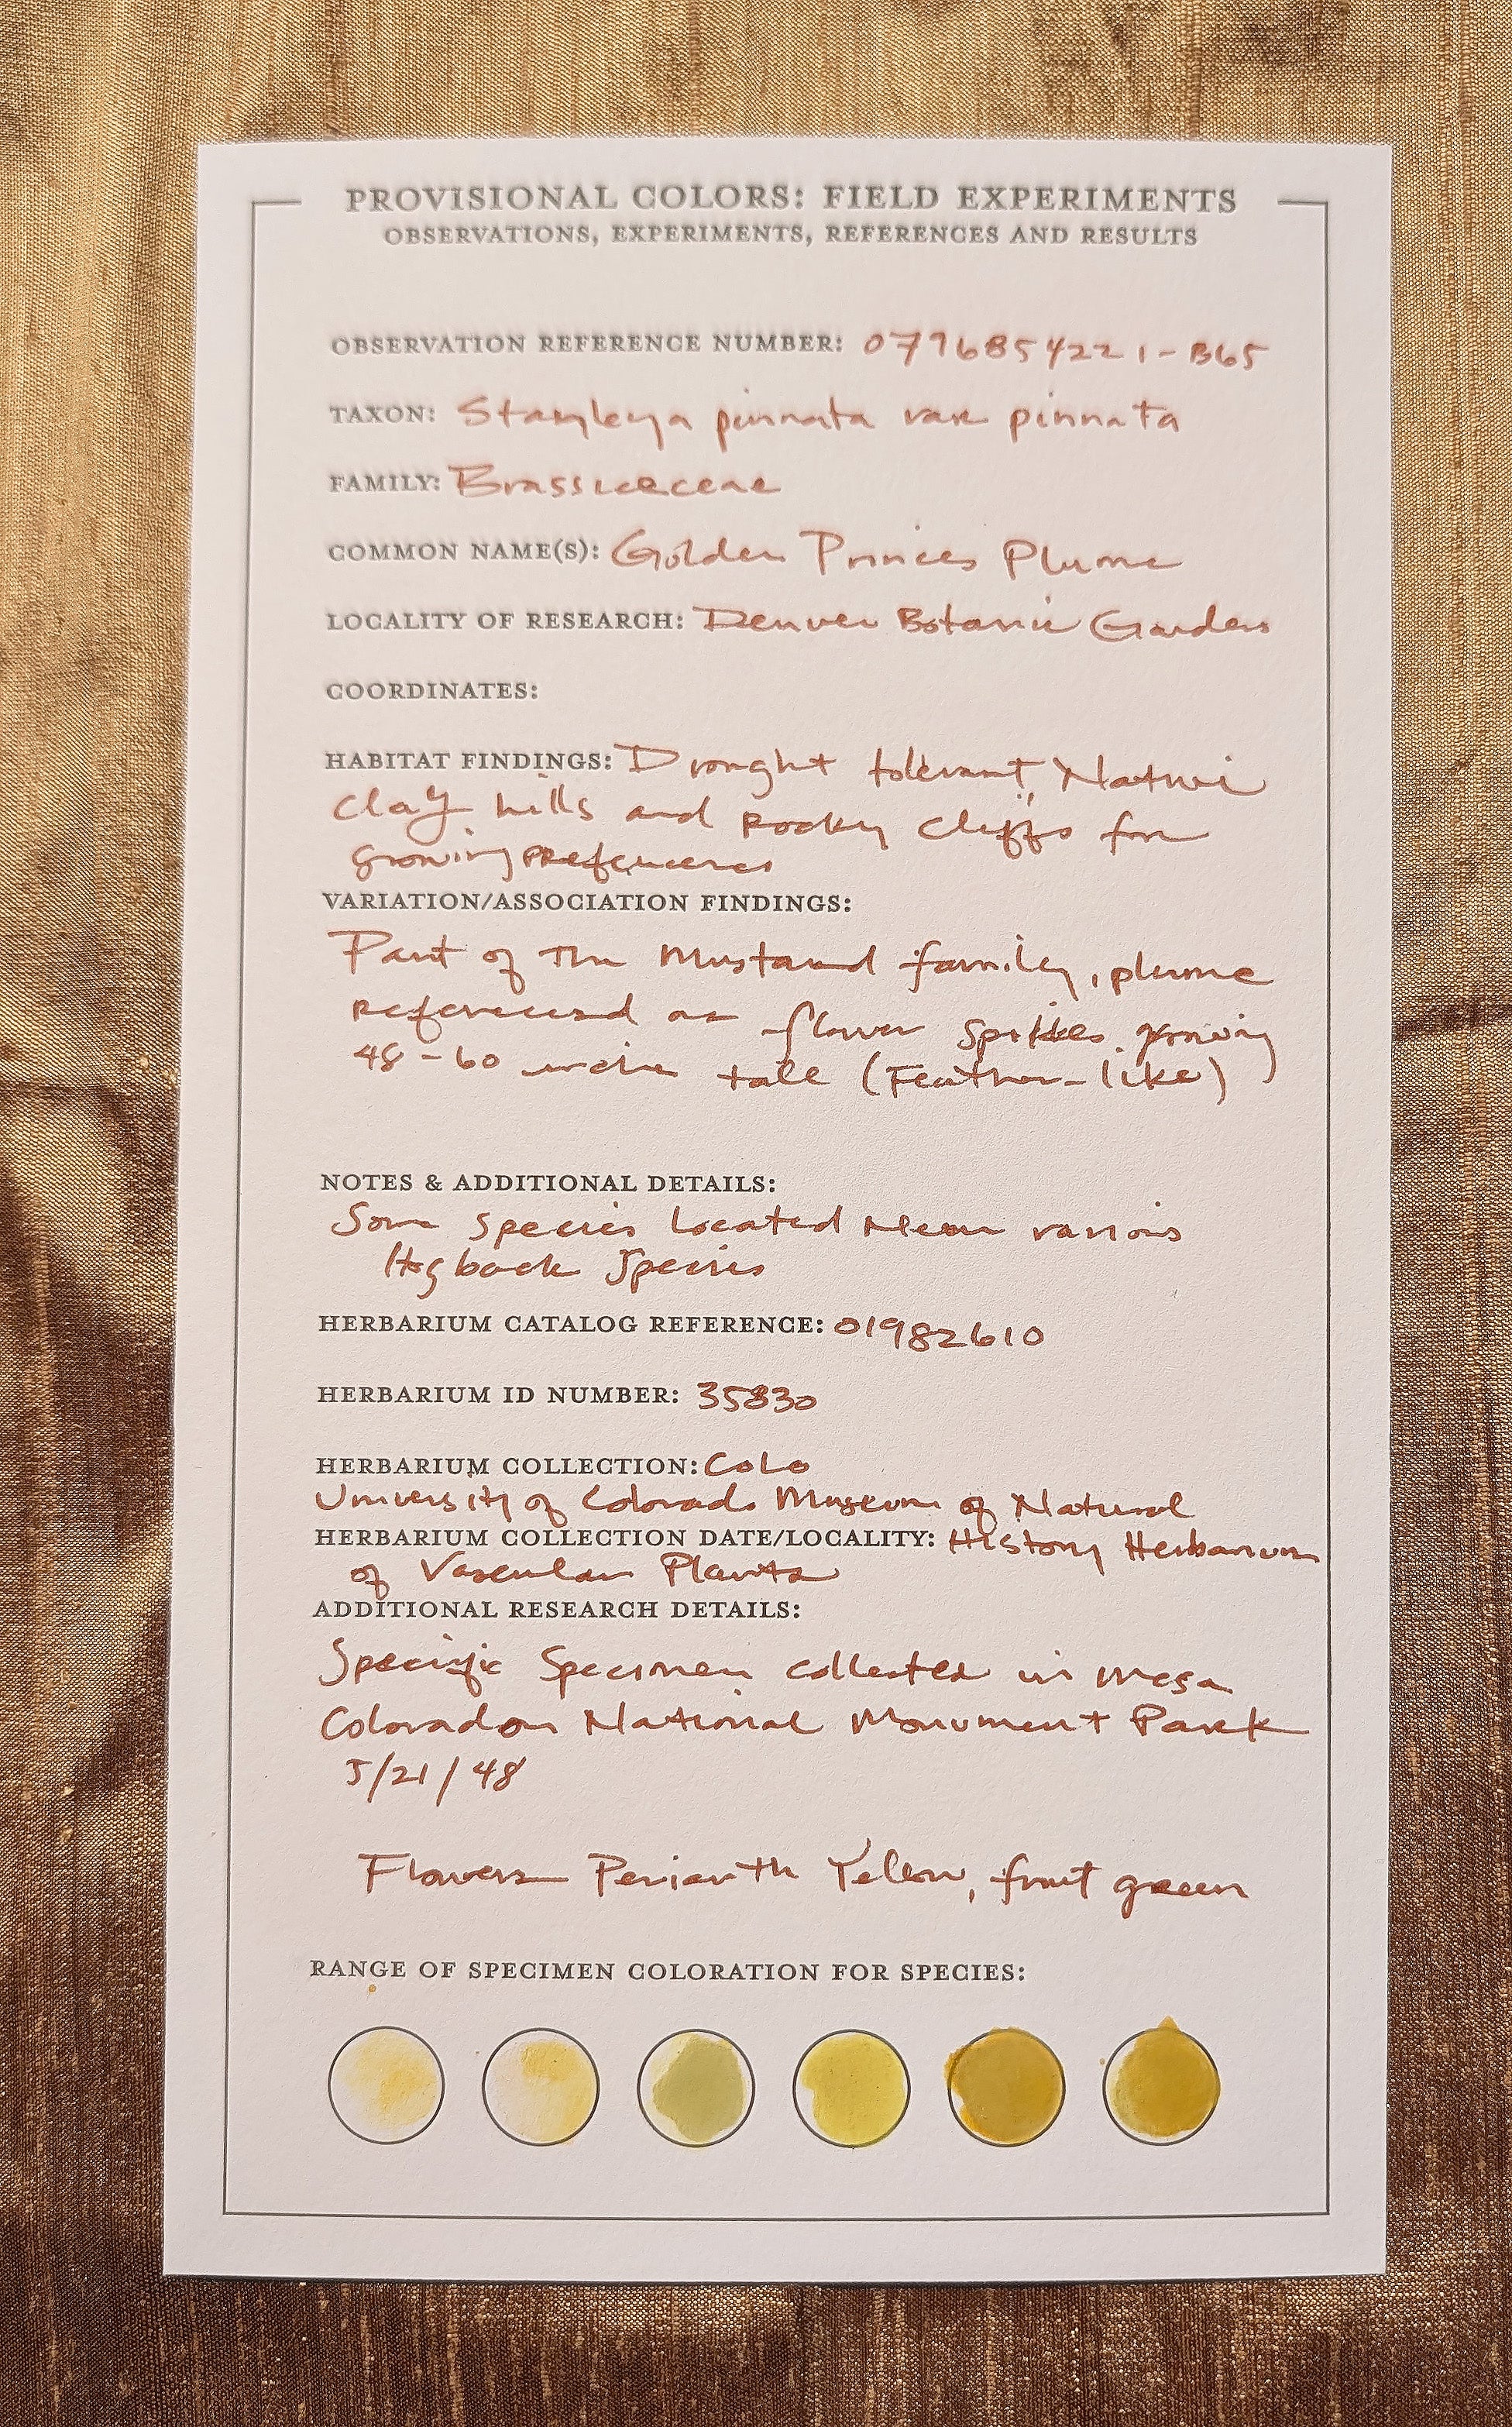 PROVISIONAL COLORS: FIELD EXPERIMENTS
OBSERVATIONS, EXPERIMENTS, REFERENCES AND RESULTS
OBSERVATION REFERENCE NUMBER:
TAXON: Stanleya pinnata var pinnata
FAMILY: Brassicaceae
COMMON NAME(S): Golden Princes Plume
LOCALITY OF RESEARCH: Denver Botanic Gardens
COORDINATES:
HABITAT FINDINGS: Drought tolerant, Native
Clay hills and Rocky Cliffs for
growing preferences
VARIATION/ASSOCIATION FINDINGS:
Part of the Mustard family, plume
referenced as flower spikes growing
48-60 inches tall (Feather-like)
NOTES & ADDITIONAL DETAILS:
Some species located near various
Hogback Species
HERBARIUM CATALOG REFERENCE: 01982610
HERBARIUM ID NUMBER: 35830
HERBARIUM COLLECTION: COLO
University of Colorado Museum of Natural
HERBARIUM COLLECTION DATE/LOCALITY: History Herbarium
of Vascular Plants
ADDITIONAL RESEARCH DETAILS:
Specific Specimen collected in Mesa
National Monument Park
5/21/48
Flowers Perianth Yellow, fruit green
RANGE OF SPECIMEN COLORATION FOR SPECIES: